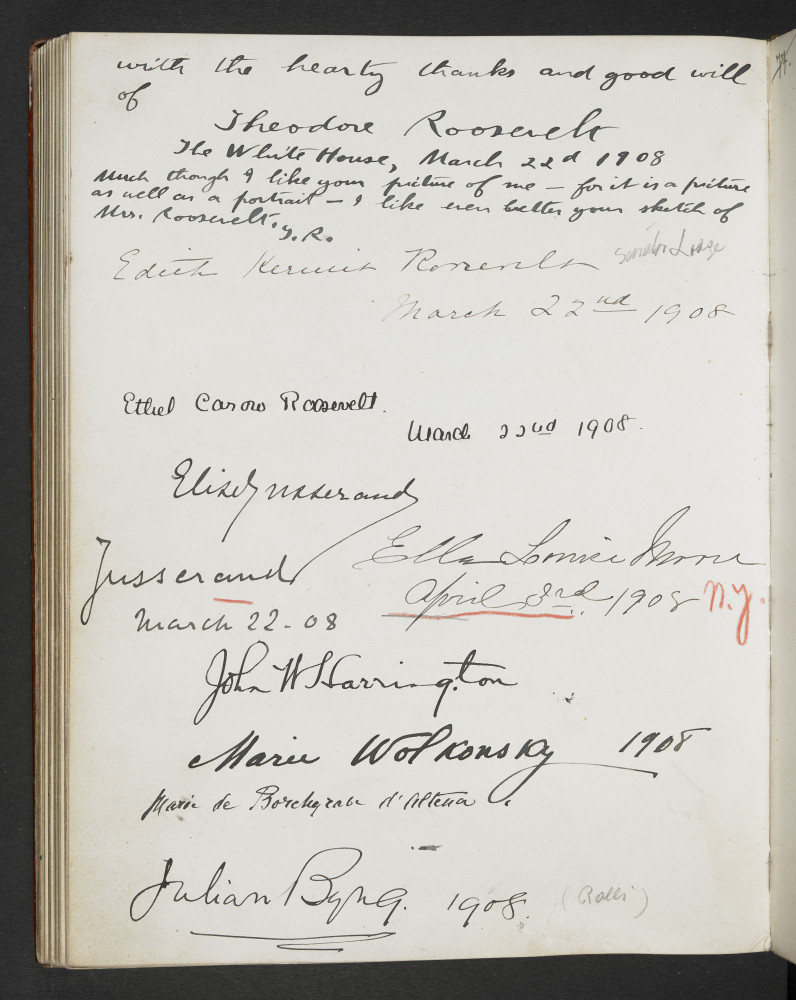 77.
with the hearty thanks and good will
of
Theodore Roosevelt
The White House, March 22d 1908
Much though I like your picture of me – for it is a picture
as well as a portrait – I like even better your sketch of
Mrs. Roosevelt. T. R.
Senator Lodge
Edith Kermit Roosevelt
March 22nd 1908
Ethel Carow Roosevelt.
March 22nd 1908.
Elise Jusserand
Jusserand
March 22-08
Ella Louise Moore
April 3rd. 1908 N.Y.
John W Harrington
Marie Wolkonsky 1908
Marie de Borchgrave d'Altena.
Julian Byng. 1908. (Ralli)